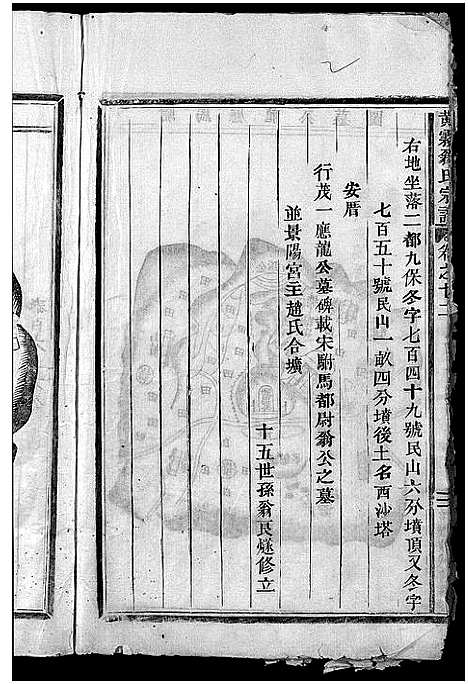 右地坐落二都九保冬字七百四十九號民山六分墳頂又冬字
七百五十號民山一畝四分墳後土名西沙塔
安厝
行茂一應龍公墓碑載宋駙馬都尉翁公之墓
並景陽宮主趙氏合壙
十五世孫翁民燧修立